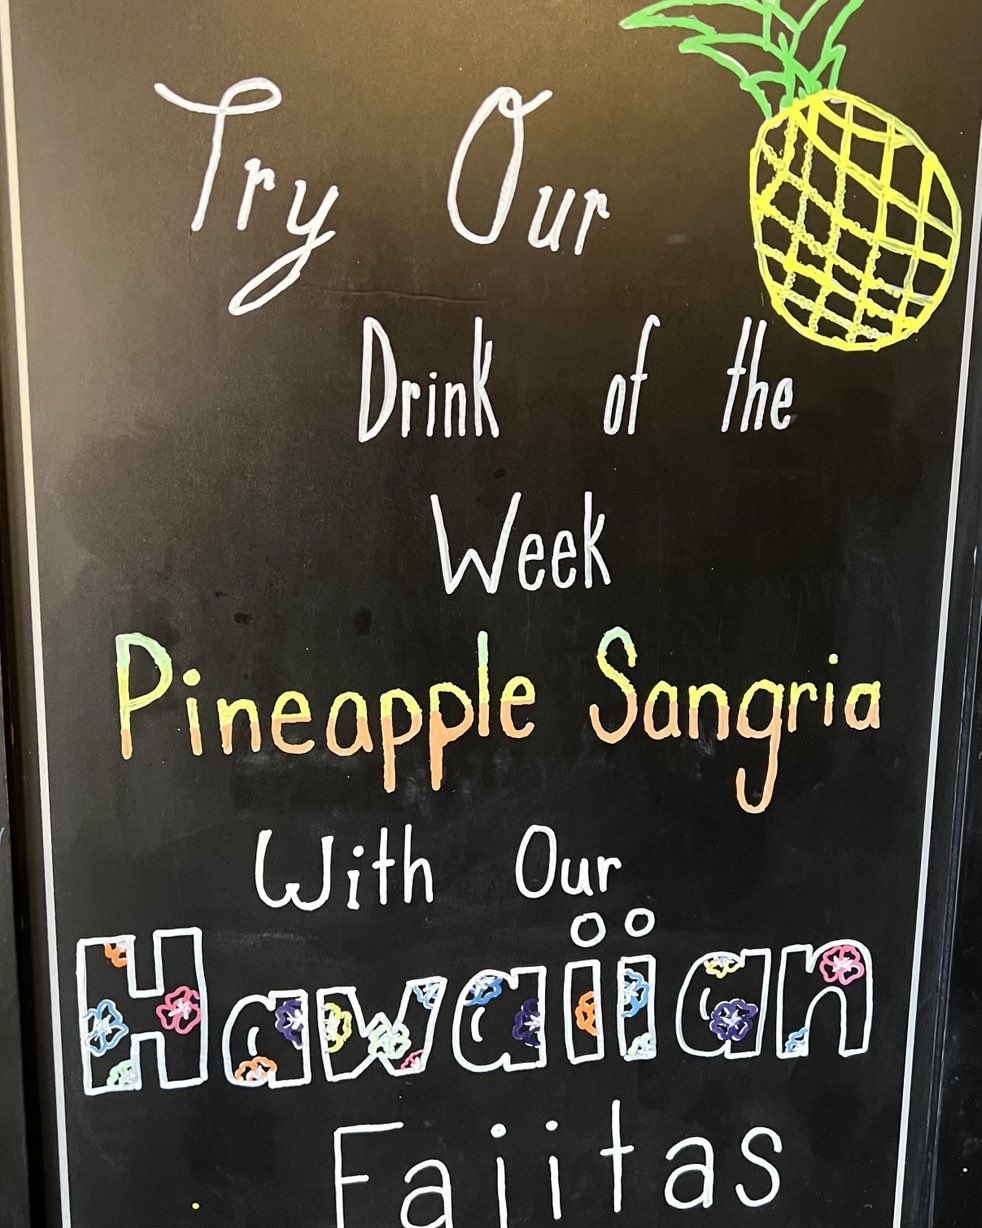 Try Our
Drink of the
Week
Pineapple Sangria
With Our
Hawaiian
Fajitas